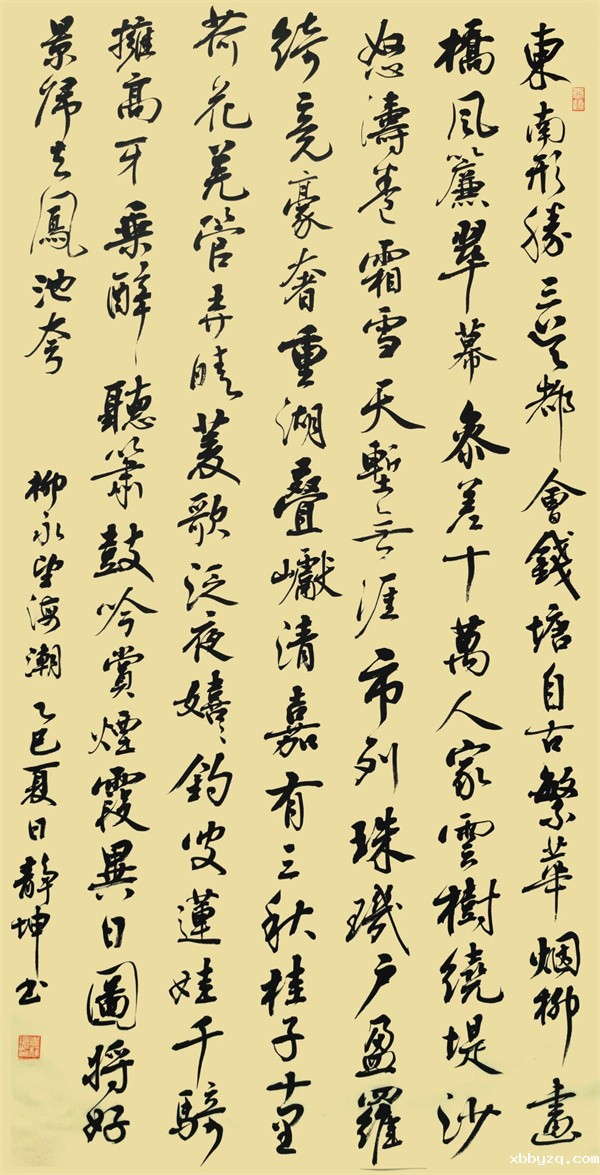 東南形勝三吳都會錢塘自古繁華烟柳畫
橋風簾翠幕參差十萬人家雲樹繞堤沙
怒濤卷霜雪天塹無涯市列珠璣户盈羅
綺竞豪奢重湖疊巘清嘉有三秋桂子十里
荷花羌管弄晴菱歌泛夜嬉々釣叟蓮娃千騎
擁高牙乘醉聽簫鼓吟賞煙霞異日圖將好
景歸去鳳池夸
柳永望海潮 乙巳夏日靜坤书
xbbyzq.com